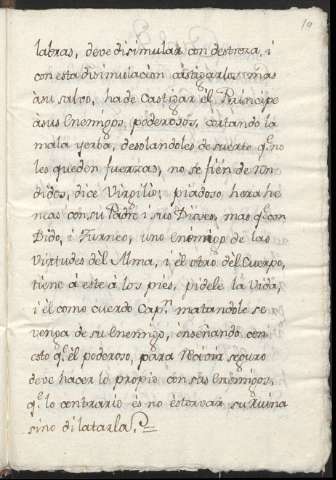 10
labras, deve disimular con destreza, i
con esta disimulacion castigarlos mas
à su salvo, ha de Castigar el Principe
à sus Enemigos poderosos, cortando la
mala yerba, desolandoles de suerte q.e no
les queden fuerzas, no se fien de
didos, dice Virgilio; piadoso hera he
neas con su Padre i sus Dioses, mas q.e con
Dido, i Turneo, uno Enemigo de las
Virtudes del Alma, i el otro del Cuerpo,
tiene à este à los pies, pidele la Vida,
i èl como cuerdo Cap.n matandole se
venga de su Enemigo, enseñando con
esto q.e el poderoso, para Reinar seguro
deve hacer lo propio con sus Enemigos,
q.e lo contrario es no estorvar su ruina
sino dilatarla.